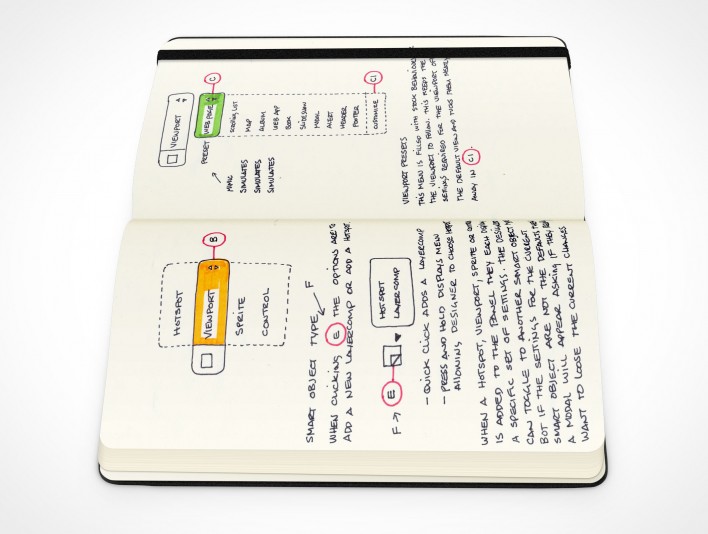 HOTSPOT
VIEWPORT B
SPRITE
CONTROL
SMART OBJECT TYPE F
WHEN CLICKING E THE OPTIONS ARE
ADD A NEW LAYERCOMP OR ADD A
F → E
HOTSPOT
LAYERCOMP
- QUICK CLICK ADDS A LAYERCOMP
- PRESS AND HOLD DISPLAYS MENU
ALLOWING DESIGNER TO CHOOSE
WHEN A HOTSPOT, VIEWPORT, SPRITE OR
IS ADDED TO THE PANEL THEY EACH
A SPECIFIC SET OF SETTINGS. THE
CAN TOGGLE TO ANOTHER SMART OBJECT
BUT IF THE SETTINGS FOR THE CURRENT
SMART OBJECT ARE NOT THE DEFAULT
A MODAL WILL APPEAR ASKING IF THEY
WANT TO LOOSE THE CURRENT CHANGES
VIEWPORT
PRESET WEB PAGE C
SCROLL LIST
MIMIC MAP
SIMULATES ALBUM
SIMULATES WEB APP
SIMULATES BOOK
SLIDESHOW
MODAL
ALERT
HEADER
FOOTER
CUSTOMISE C1
VIEWPORT PRESETS
THIS MENU IS FILLED WITH STOCK BEHAVIOURS
THE VIEWPORT TO FOLLOW. THIS KEEPS THE
SETTINGS REQUIRED FOR THE VIEWPORT OFF
THE DEFAULT VIEW AND TUCKS THEM NEATLY
AWAY IN C1.